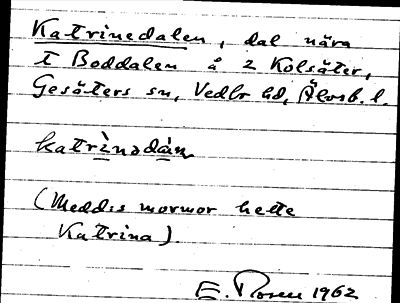 Katrinedalen, dal nära
t Boddalen å 2 Kolsäter,
Gesäters sn, Vedbo hd, Älvsb. l.
katrìnədàn
(Medd:s mormor hette
Katrina).
E. Rosen 1962